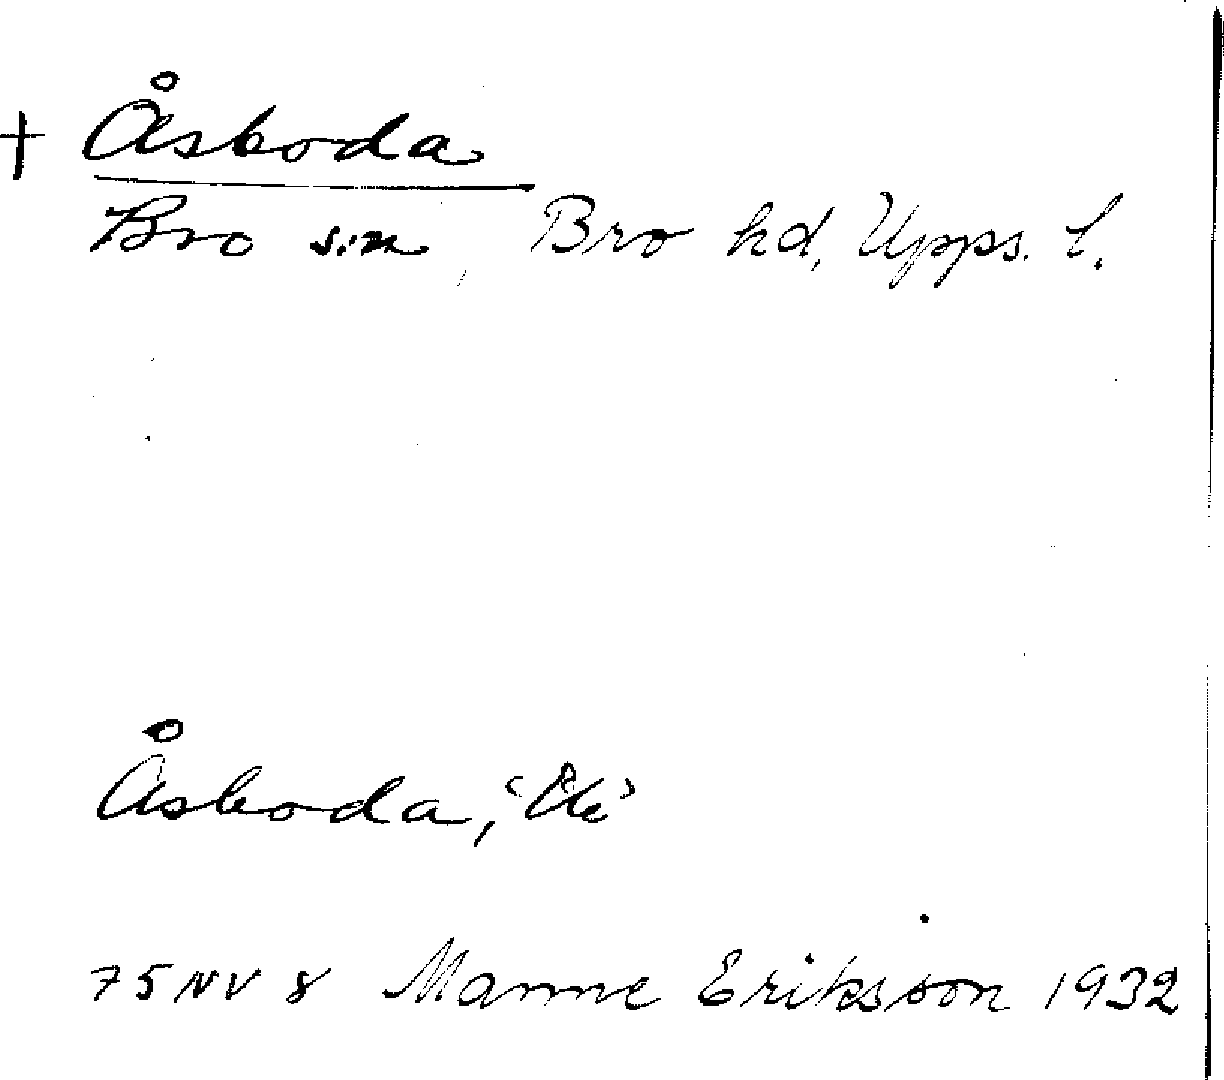 + Åsboda
Bro sn, Bro hd, Upps. l.
Åsboda,
75 NV 8 Manne Eriksson 1932